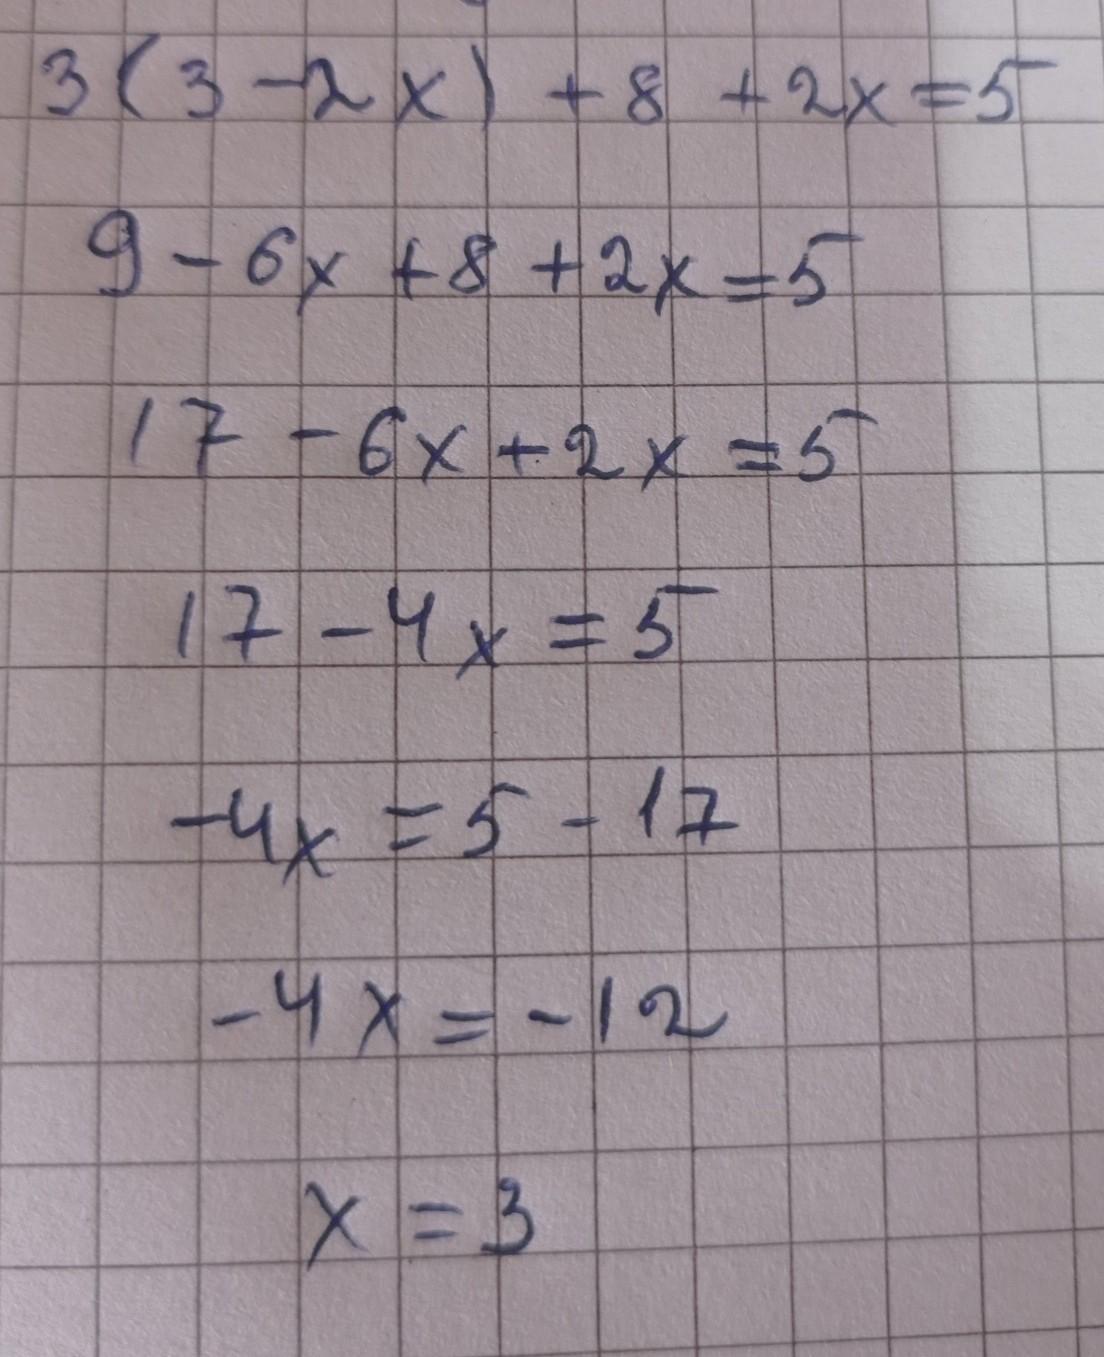 3(3-2x)+8+2x=5
9-6x+8+2x=5
17-6x+2x=5
17-4x=5
-4x=5-17
-4x=-12
x=3